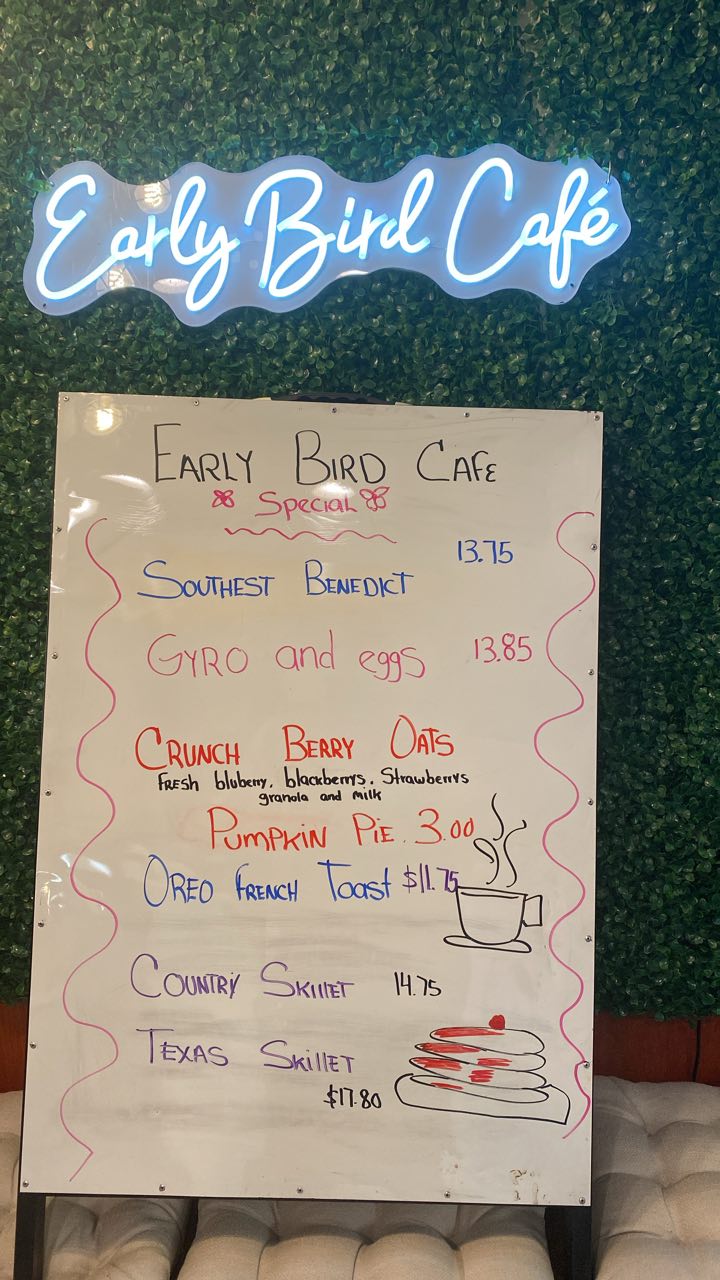 Early Bird Café
EARLY BIRD CAFE
Special
13.75
SOUTHEST BENEDICT
GYRO and eggs 13.85
CRUNCH BERRY OATS
FRESH bluberry, blackberrys. Strawberrys
granola and milk
PUMPKIN PIE. 3.00
OREO FRENCH Toast $11.75
COUNTRY SKILLET 14.75
TEXAS SkillET
$17.80